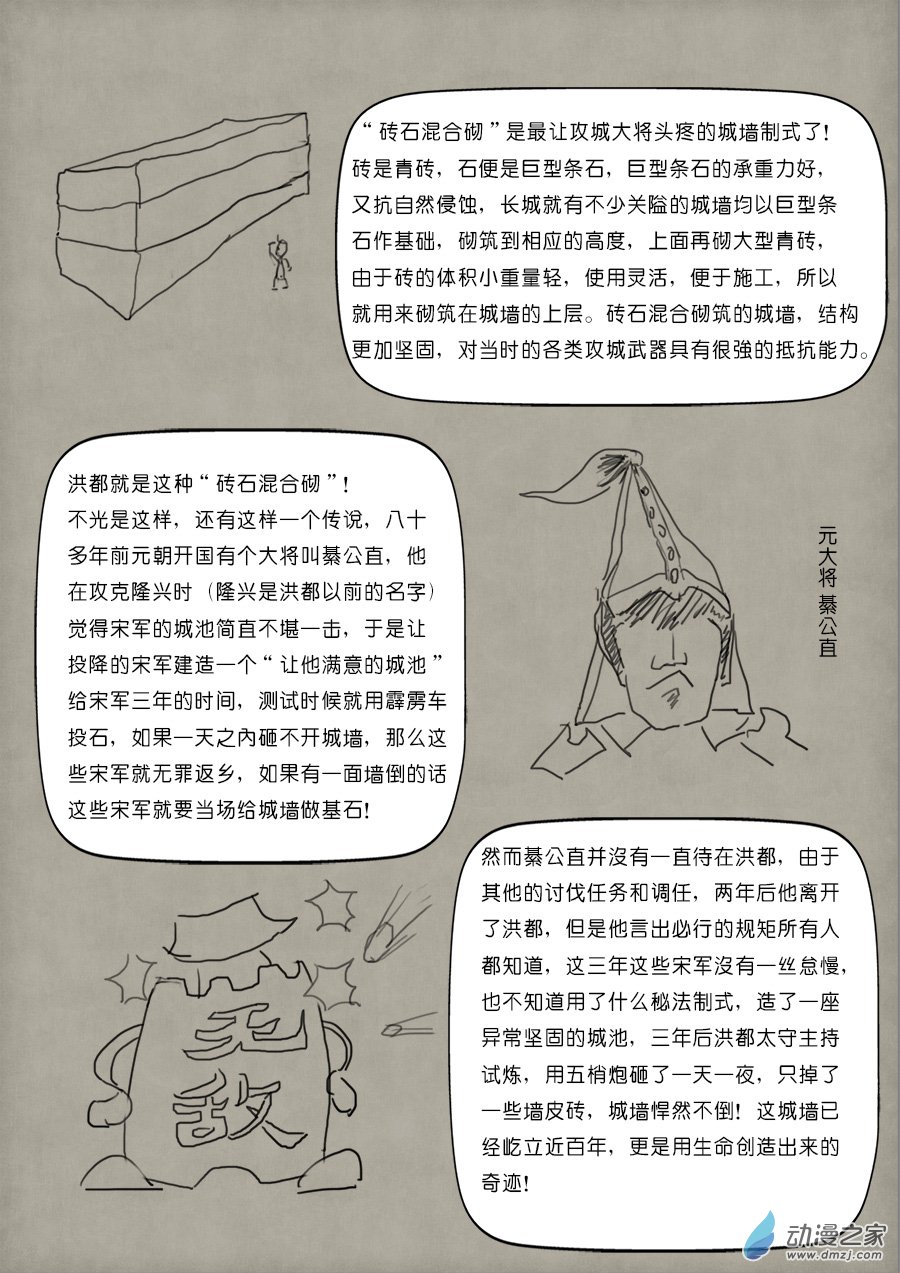 “砖石混合砌”是最让攻城大将头疼的城墙制式了!
砖是青砖，石便是巨型条石，巨型条石的承重力好，
又抗自然侵蚀，长城就有不少关隘的城墙均以巨型条
石作基础，砌筑到相应的高度，上面再砌大型青砖，
由于砖的体积小重量轻，使用灵活，便于施工，所以
就用来砌筑在城墙的上层。砖石混合砌筑的城墙，结构
更加坚固，对当时的各类攻城武器具有很強的抵抗能力。
洪都就是这种“砖石混合砌”!
不光是这样，还有这样一个传说，八十
多年前元朝开国有个大将叫綦公直，他
在攻克隆兴时（隆兴是洪都以前的名字）
觉得宋军的城池简直不堪一击，于是让
投降的宋军建造一个“让他满意的城池”
给宋军三年的时间，测试时候就用霹雳车
投石，如果一天之內砸不开城墙，那么这
些宋军就无罪返乡，如果有一面墙倒的话
这些宋军就要当场给城墙做基石!
元大将 綦公直
然而綦公直并沒有一直待在洪都，由于
其他的讨伐任务和调任，两年后他离开
了洪都，但是他言出必行的规矩所有人
都知道，这三年这些宋军沒有一丝怠慢，
也不知道用了什么秘法制式，造了一座
异常坚固的城池，三年后洪都太守主持
试炼，用五梢炮砸了一天一夜，只掉了
一些墙皮砖，城墙悍然不倒! 这城墙已
经屹立近百年，更是用生命创造出来的
奇迹!
无
敌
动漫之家
www.dmzj.com